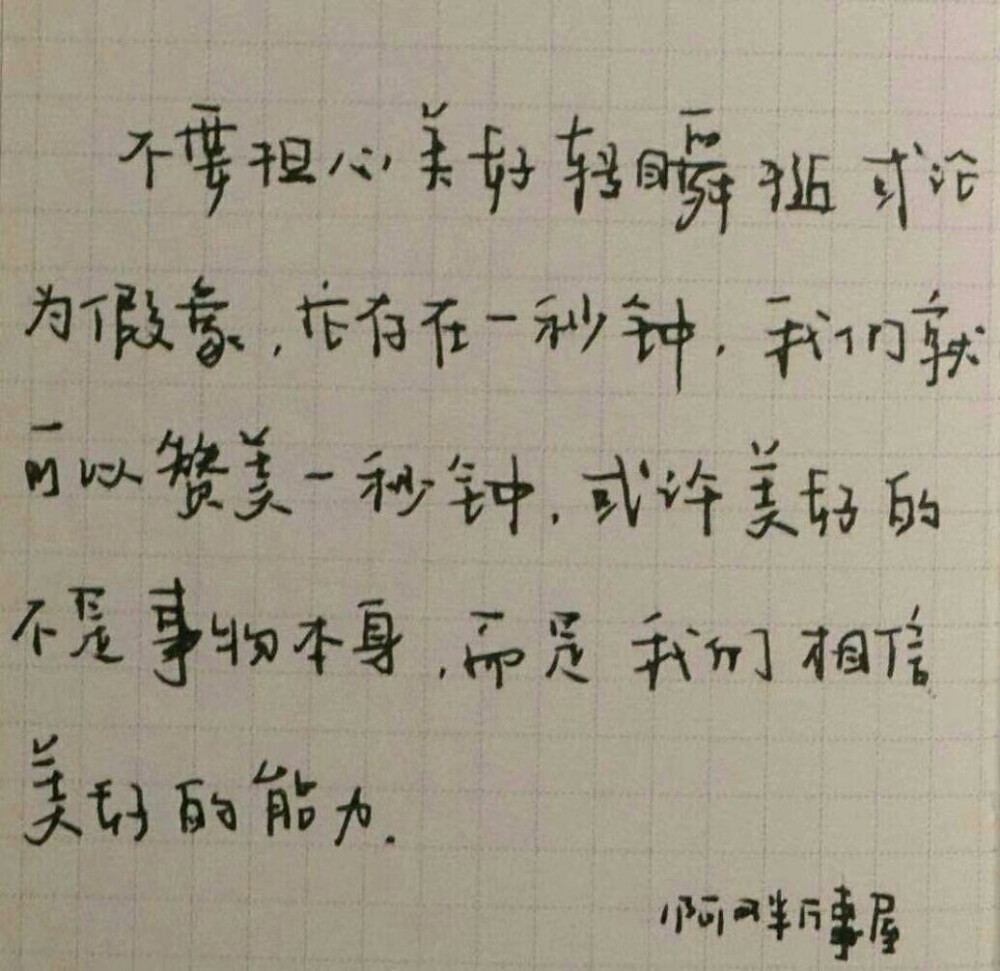 不要担心美好转瞬即逝或沦
为假象,它存在一秒钟,我们就
可以赞美一秒钟,或许美好的
不是事物本身,而是我们相信
美好的能力.